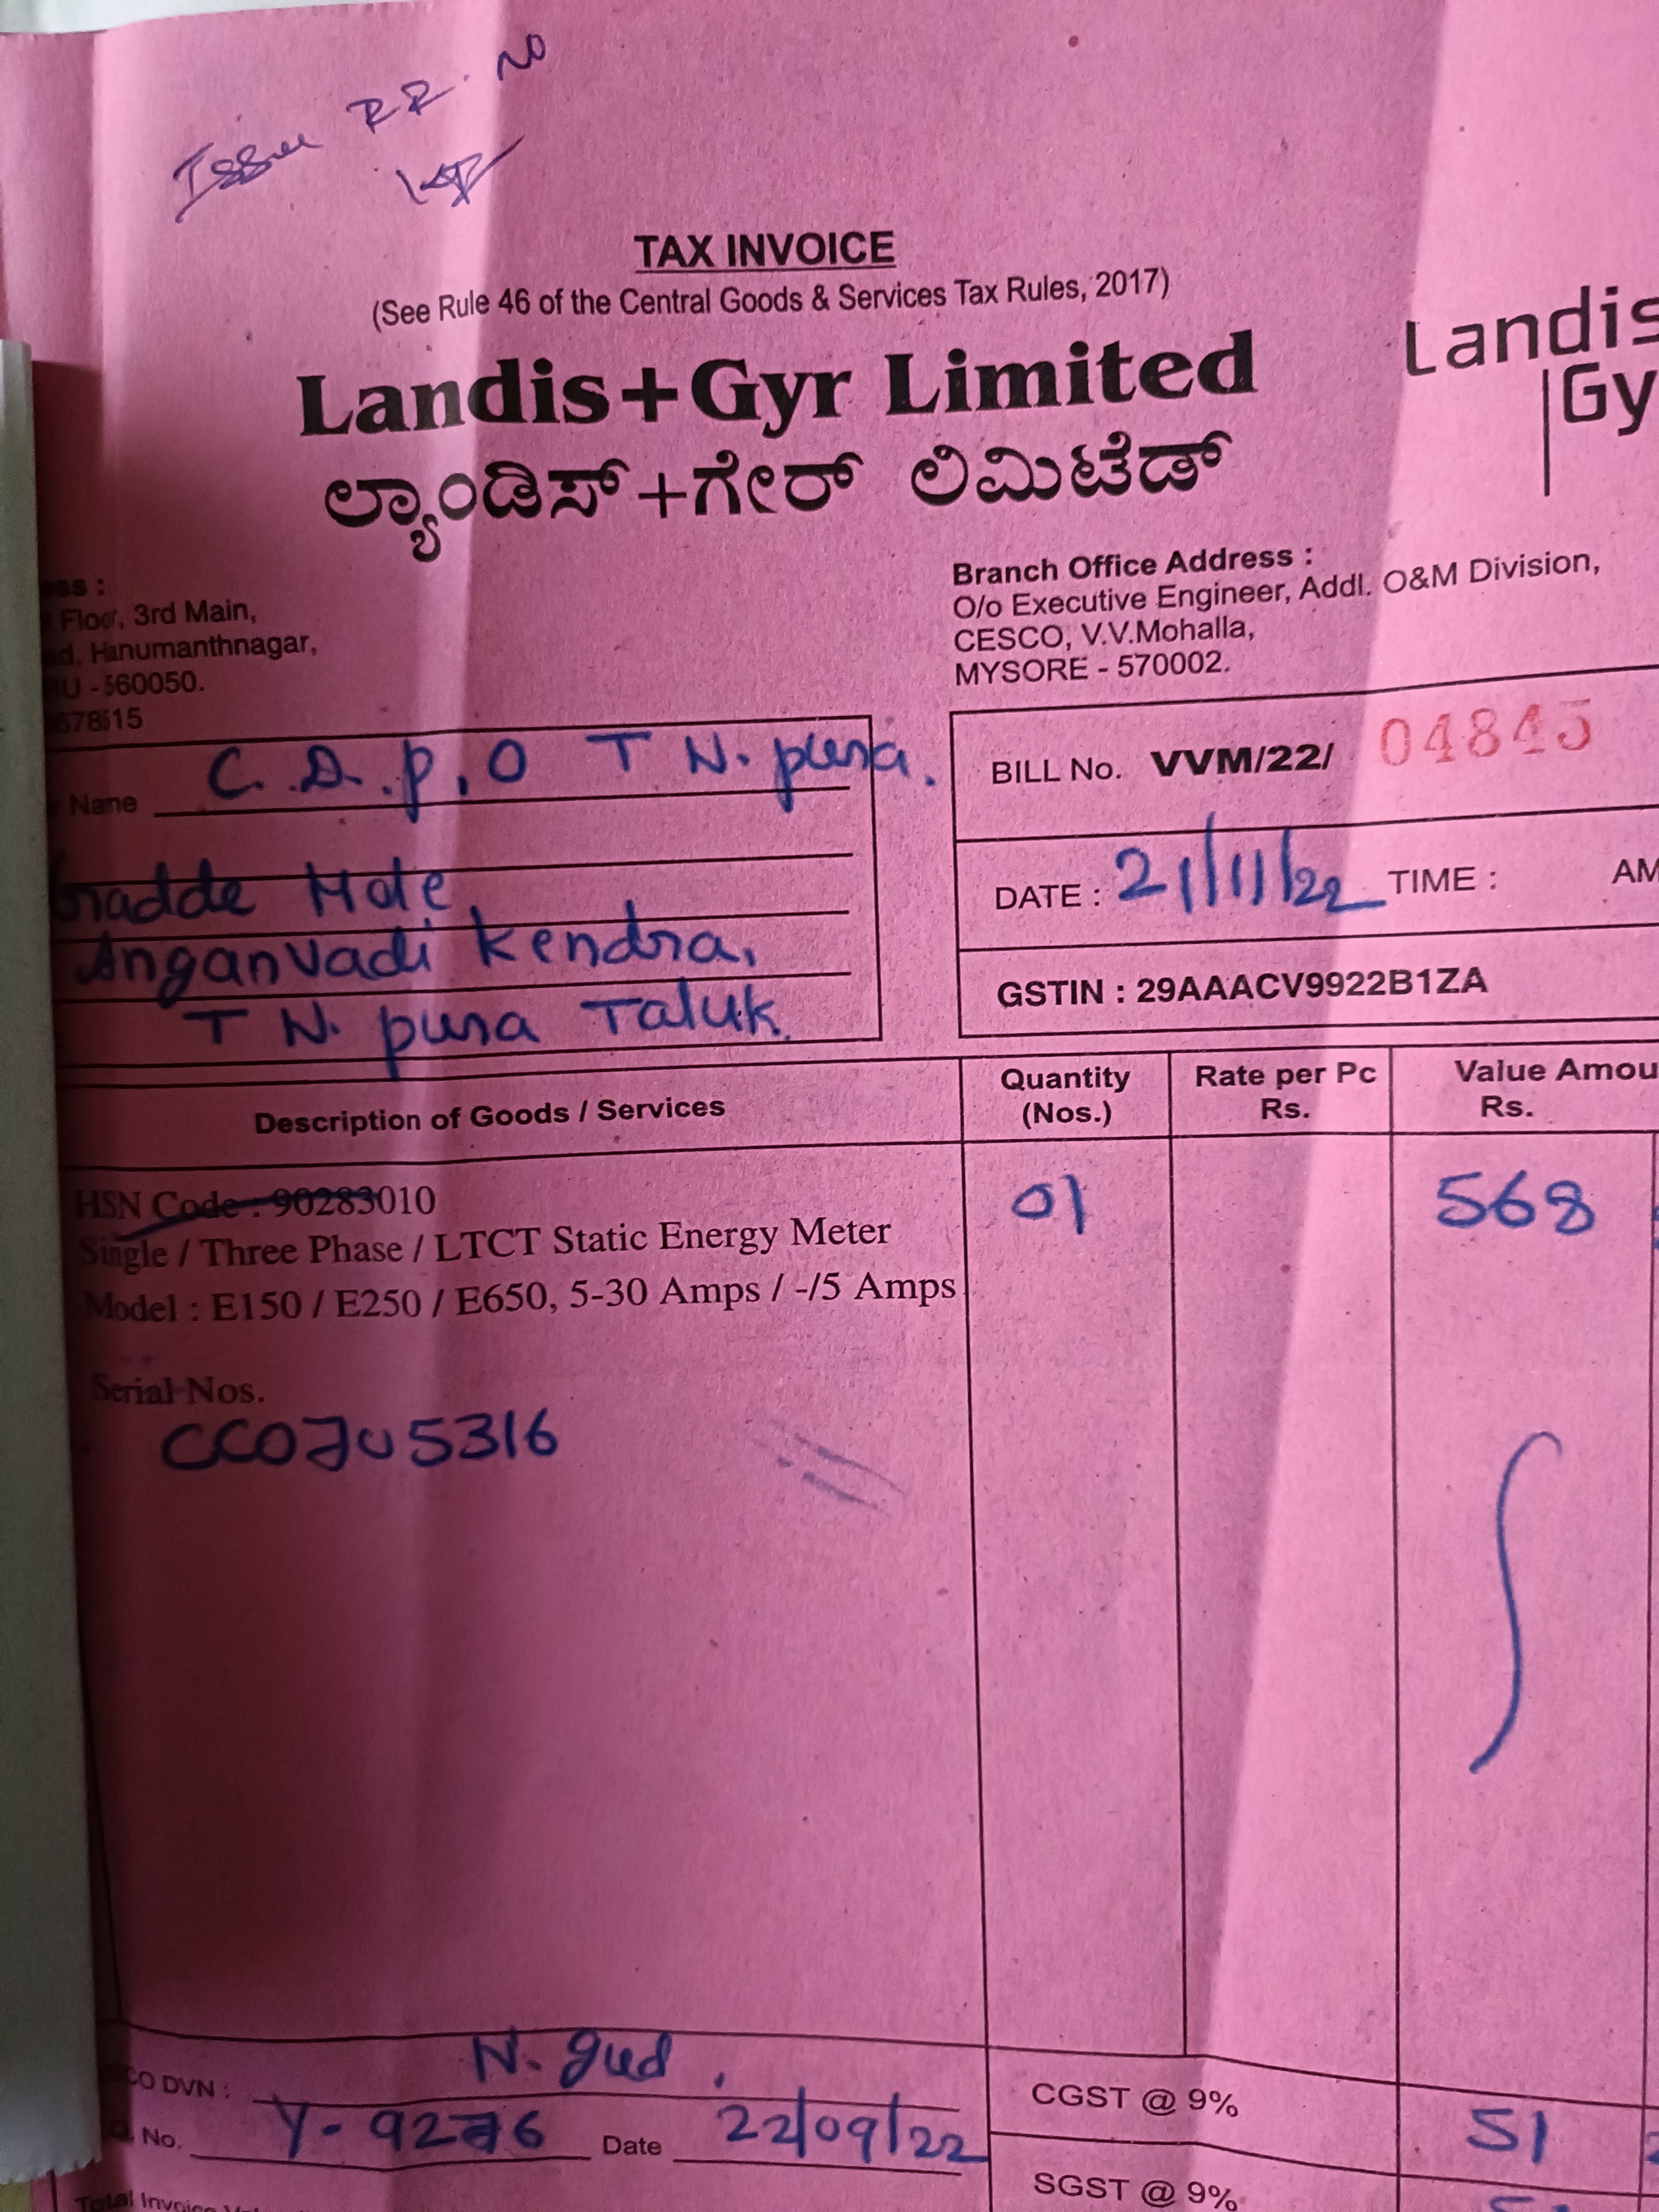 Issue RR. NO
TAX INVOICE
(See Rule 46 of the Central Goods & Services Tax Rules, 2017)
Landis+Gyr Limited
ಲ್ಯಾಂಡಿಸ್+ಗೇರ್ ಲಿಮಿಟೆಡ್
Landis
Gy
ess :
Floor, 3rd Main,
d, Hanumanthnagar,
U - 560050.
678515
Branch Office Address :
O/o Executive Engineer, Addl. O&M Division,
CESCO, V.V.Mohalla,
MYSORE - 570002.
Name C.D.P.O T N. pura.
Gadde Mole
Anganvadi Kendra,
T N. pura Taluk.
BILL No. VVM/22/ 04845
DATE : 21/11/22 TIME : AM
GSTIN : 29AAACV9922B1ZA
Description of Goods / Services
Quantity (Nos.)
Rate per Pc Rs.
Value Amou Rs.
HSN Code : 90283010
Single / Three Phase / LTCT Static Energy Meter
Model : E150 / E250 / E650, 5-30 Amps / -/5 Amps
01
568
Serial Nos.
CC0JU5316
CO DVN : N. gud.
No. Y-9276 Date 22/09/22
CGST @ 9% 51
SGST @ 9%
Total Invoice